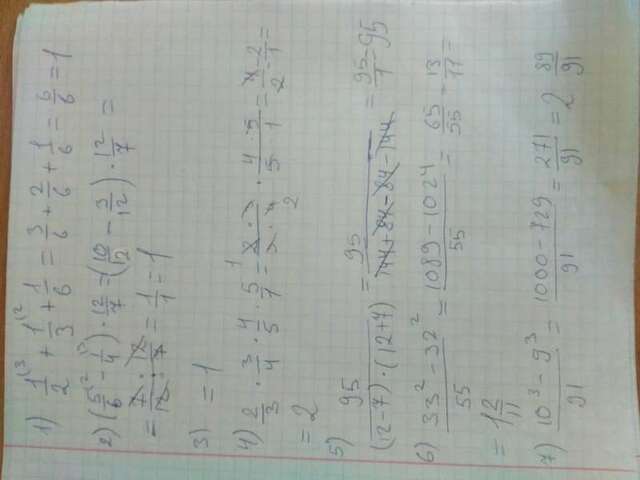 1) 1/2 + 1/3 + 1/6 = 3/6 + 2/6 + 1/6 = 6/6 = 1
2) (5/6 - 1/4) · 12/7 = (10/12 - 3/12) · 12/7 =
= 7 · 12 / 12 · 7 = 1/1 = 1
3) = 1
4) 2/3 · 3/4 · 4/5 · 5/1 = 2 · 3 / 3 · 4 · 4 · 5 / 5 · 1 = 4/2 = 2/1 =
= 2
5) 95 / (12-7) · (12+7) = 95 / 144+84-84-144 = 95/1 = 95
6) 33² - 32² / 55 = 1089 - 1024 / 55 = 65/55 = 13/11 =
= 1 2/11
7) 10³ - 9³ / 91 = 1000 - 729 / 91 = 271/91 = 2 89/91